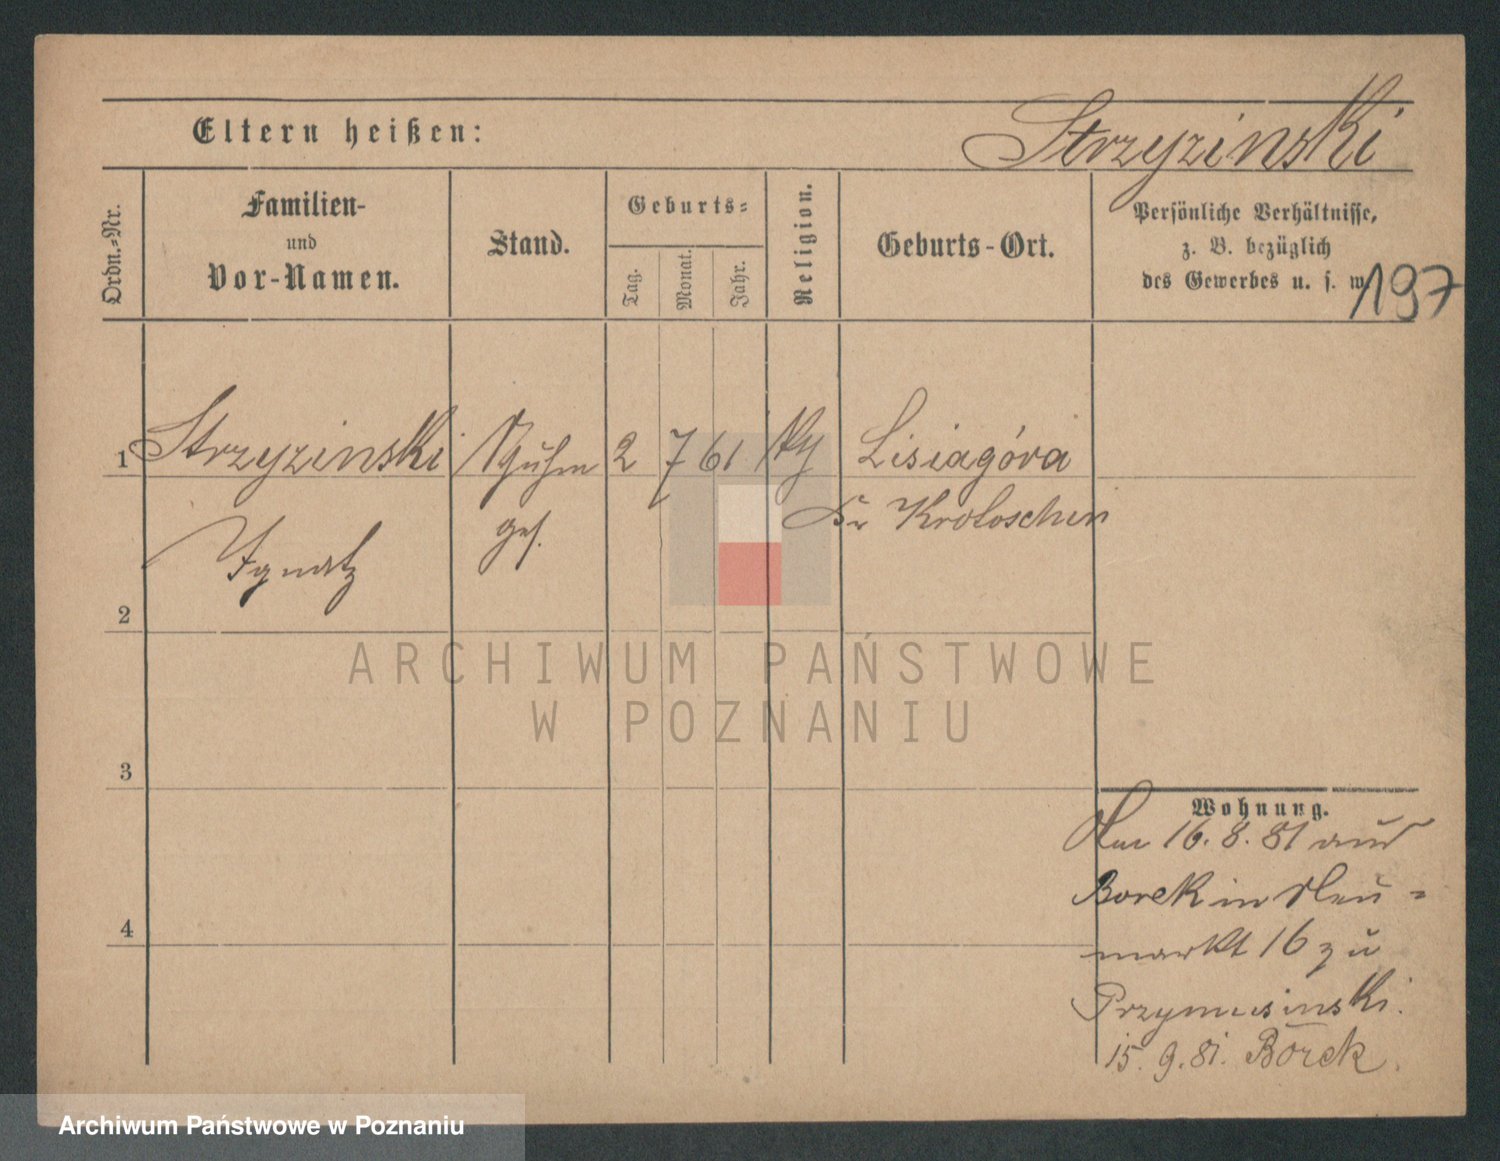 Eltern heißen:
Strzyzinski
Ordn.=Nr.
Familien-
und
Vor-Namen.
Stand.
Geburts=
Tag.
Monat.
Jahr.
Religion.
Geburts-Ort.
Persönliche Verhältnisse,
z. B. bezüglich
des Gewerbes u. s. w.
197
1 Strzyzinski 2 7 61 Lisiagóra
Kr Krotoschin
Ignatz ges.
2
3
4
Wohnung.
Am 16. 8. 81 aus
Borek in Neu=
markt 16 zu
Przymusinski.
15. 9. 81. Borek.
ARCHIWUM PAŃSTWOWE
W POZNANIU
Archiwum Państwowe w Poznaniu